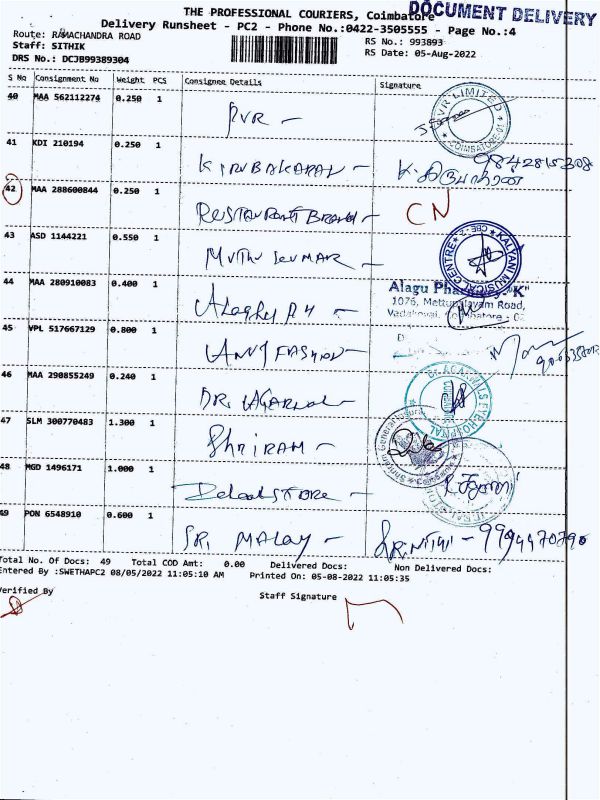 THE PROFESSIONAL COURIERS, Coimbatore
DOCUMENT DELIVERY
Delivery Runsheet - PC2 - Phone No.:0422-3505555 - Page No.:4
Route: RAMACHANDRA ROAD
RS No.: 993893
Staff: SITHIK
RS Date: 05-Aug-2022
DRS No.: DCJB99389304
S No Consignment No Weight PCS Consignee Details Signature
40 MAA 562112274 0.250 1
PVR -
VR LIMITED
COIMBATORE-01
41 KDI 210194 0.250 1
KIRUBAKARAN -
42 MAA 288600844 0.250 1
CN
43 ASD 1144221 0.550 1
MUTHU KUMAR -
KALVANI MUSICAL CENTRE CBE-2
44 MAA 280910083 0.400 1
Alagu Pharmacy-"K"
1076, Mettupalayam Road,
45 VPL 517667129 0.800 1
FASHION -
46 MAA 290855249 0.240 1
DR. AGARWAL -
47 SLM 300770483 1.300 1
SHRIRAM -
48 MGD 1496171 1.000 1
STORE -
49 PON 6548910 0.600 1
SRI MALAY - SRINITHI - 9994470790
Total No. Of Docs: 49 Total COD Amt: 0.00 Delivered Docs: Non Delivered Docs:
Entered By :SWETHAPC2 08/05/2022 11:05:10 AM Printed On: 05-08-2022 11:05:35
Verified By
Staff Signature